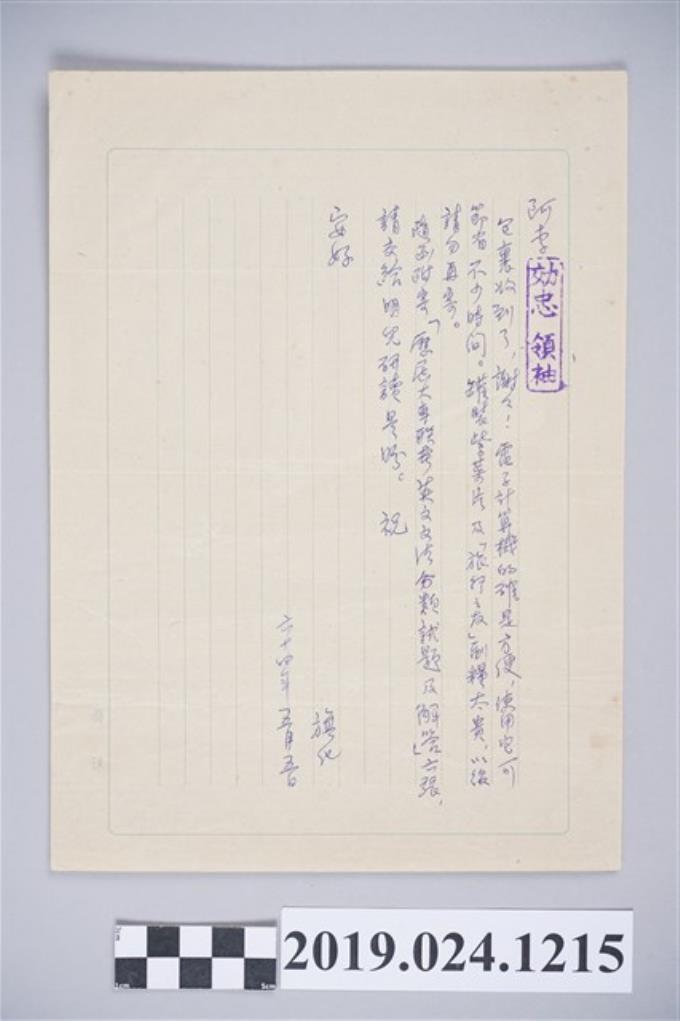 阿李
効忠領袖
包裹收到了,謝々!電子計算機的確是方便,使用它可
節省不少時間。罐裝紫菜片及「旅行之友」副糧太貴,以後
請勿再寄。
隨函附寄「歷屆大專聯考英文文法分類試題及解答」六張,
請交給明先研讀是盼。 祝
安好
旗化
六十四年五月五日
2cm
1cm
5cm
2019.024.1215